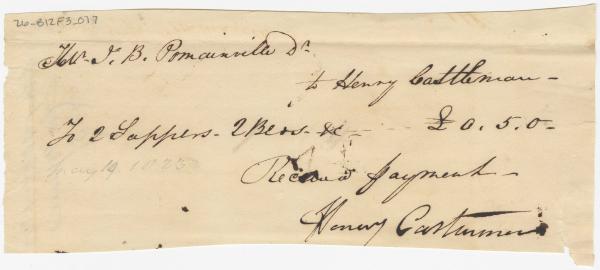 26-B12F3_017
Mr. J. B. Pomainville Dr.
to Henry Castleman -
To 2 Suppers - 2 Beds - &c - £ 0. 5. 0 -
May 19 1825
Received payment -
Henery Casturman